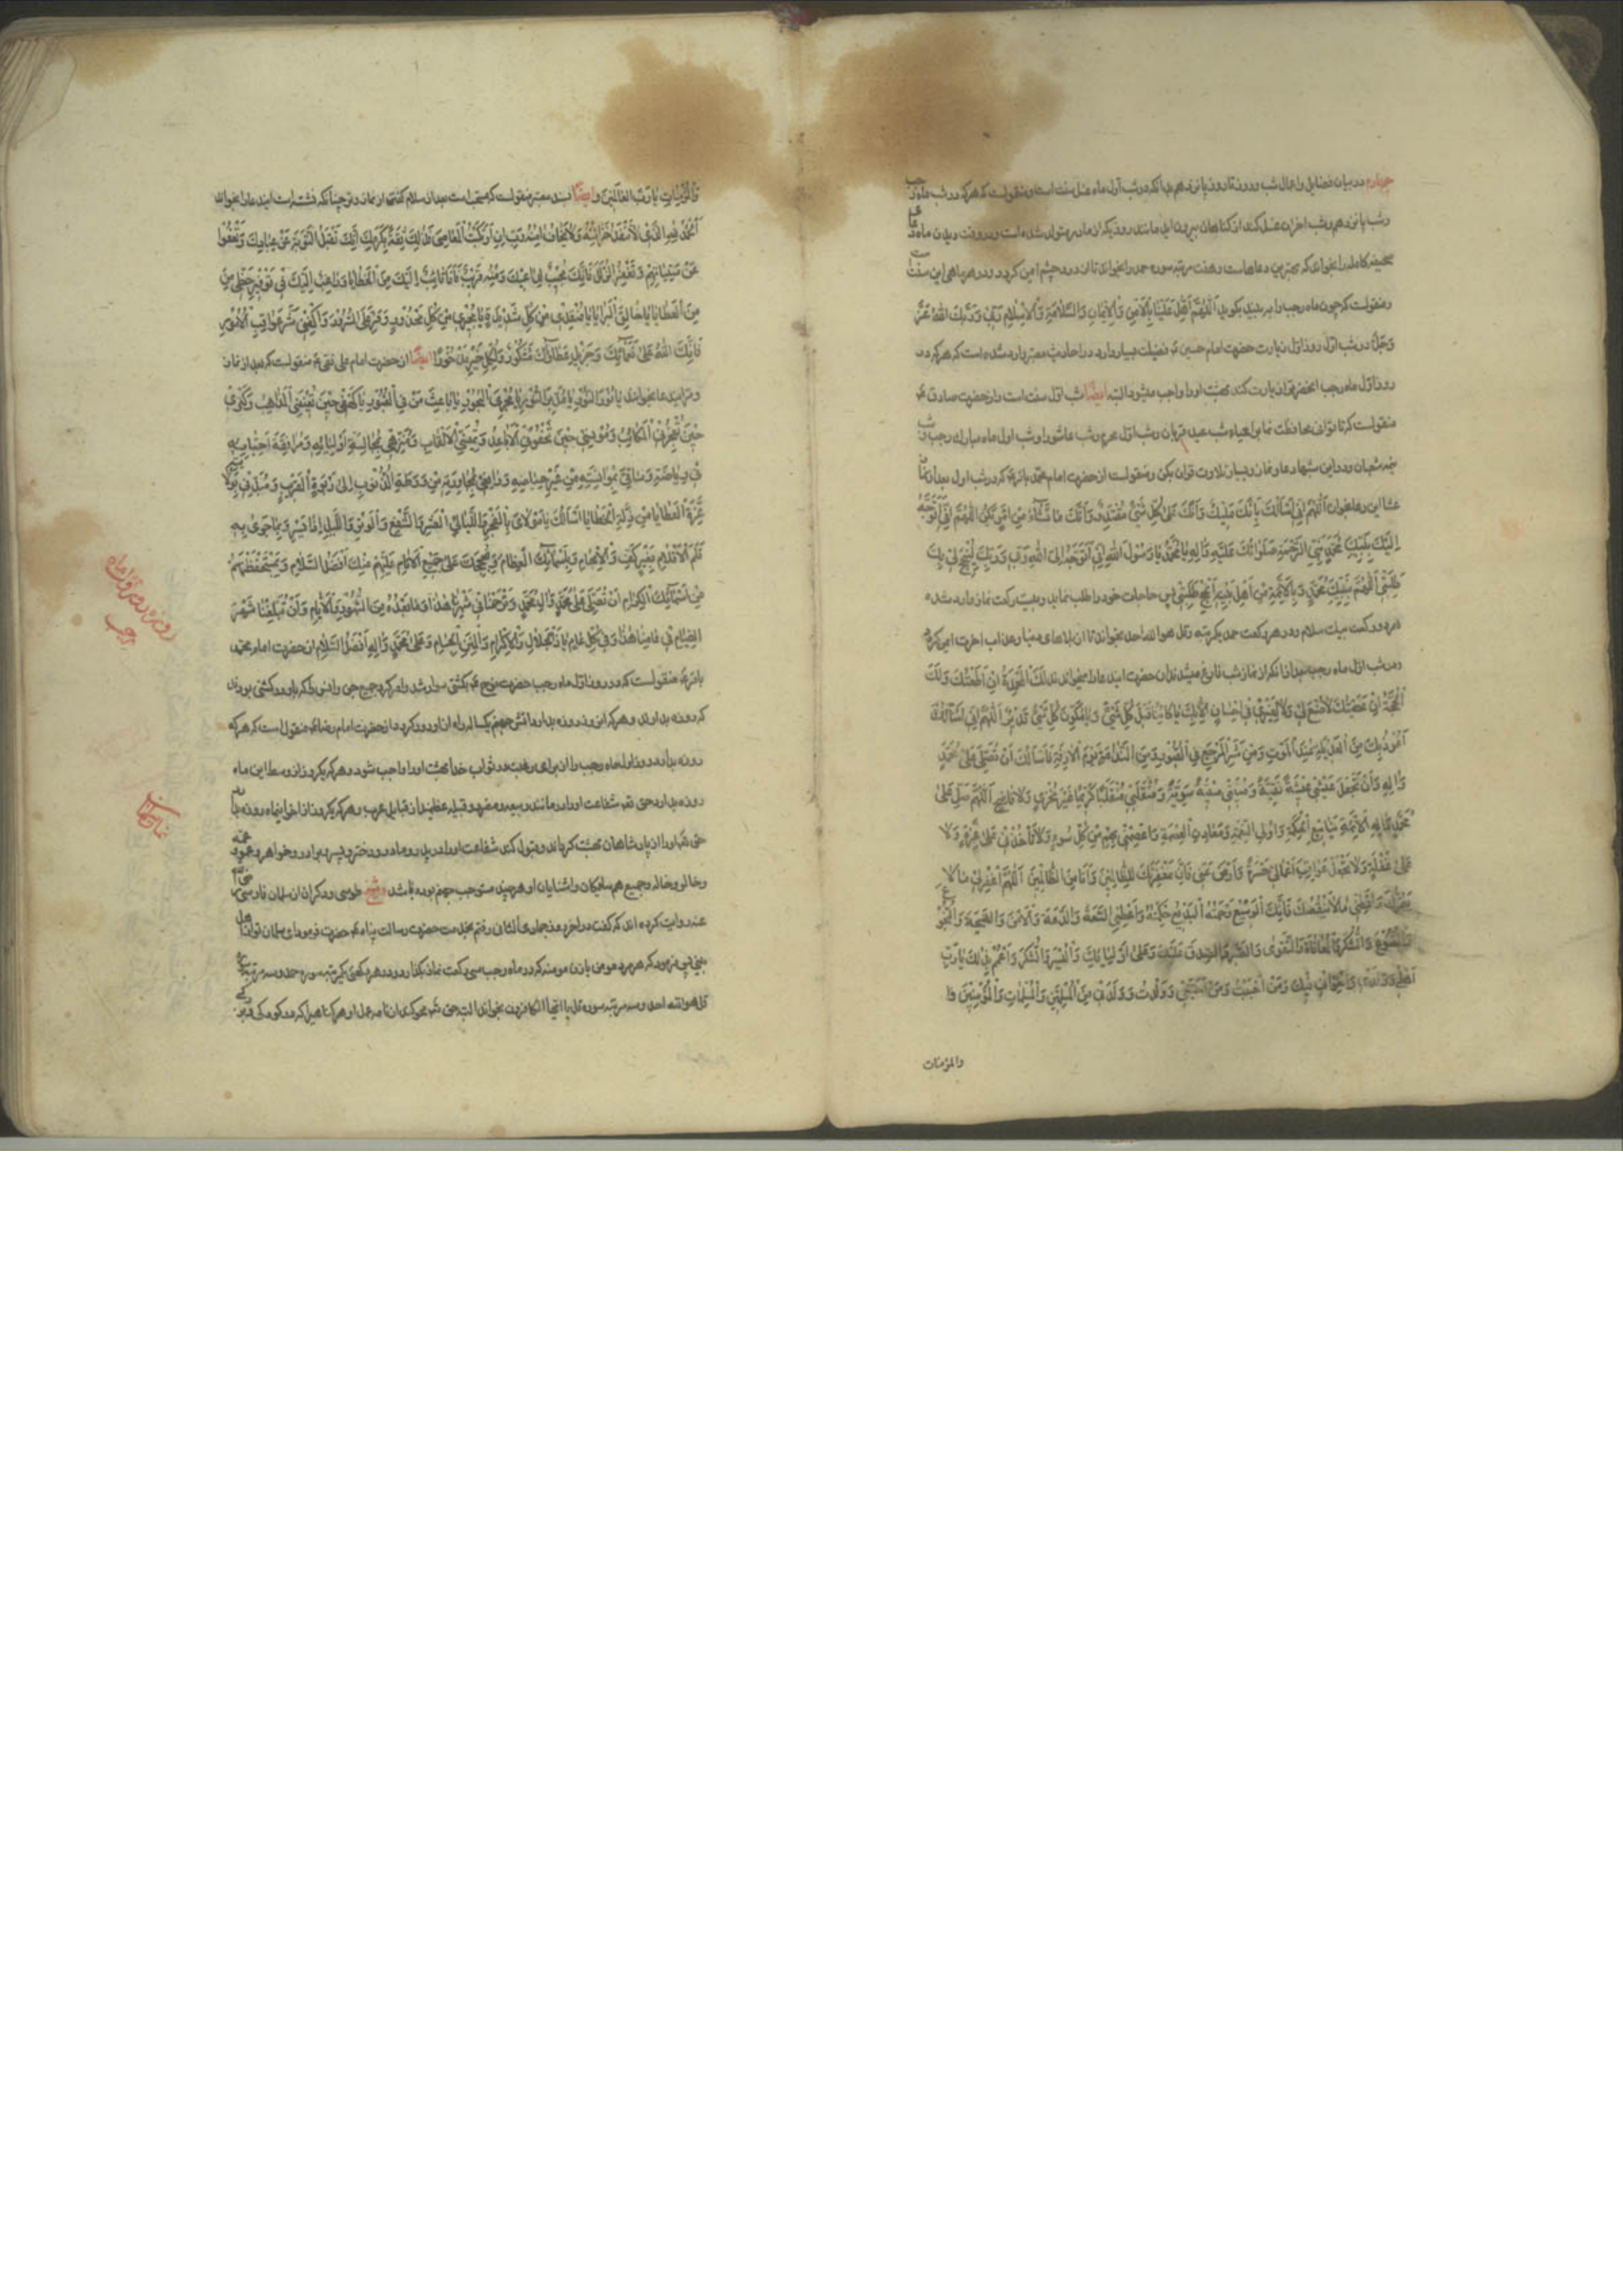 چهارم در بیان فضایل و اعمال شب و روز تا روز پانزدهم بدانکه در شب اول ماه غسل سنت است و منقولست که هرکه در شب ماه رجب
و شب پانزدهم و شب آخر آن غسل کند از گناهان بیرون آید مانند روزیکه از مادر متولد شده است و در وقت دیدن ماه دعا
صحیفه کامله را بخواند که بهترین دعاهاست و هفت مرتبه سوره حمد را بخواند تا از درد چشم ایمن گردد و در هر ماهی این سنت
و منقولست که چون ماه رجب را ببیند بگوید اَللّهُمَّ اَهِلَّهُ عَلَیْنا بِالْاَمْنِ وَالْایمانِ وَالسَّلامَةِ وَالْاِسْلامِ رَبّی وَرَبُّکَ اللهُ عَزَّ
وَجَلَّ و در شب اول و روز اول زیارت حضرت امام حسین ع فضیلت بسیار دارد و در احادیث معتبر وارد شده است که هرکه در
روز اول ماه رجب آنحضرت را زیارت کند بهشت او را واجب میشود البته ایضا شب اول سنت است و از حضرت صادق ع
منقولست که تا توانی محافظت نما بر احیاء شب عید قربان و شب اول محرم و شب عاشورا و شب اول ماه مبارک رجب و شب
نیمه شعبان و در این شبها دعا و نماز و بسیار تلاوت قرآن بکن و منقولست از حضرت امام محمد باقر ع که در شب اول بعد از نماز
عشا این دعا بخوان اَللّهُمَّ اِنّی اَسْأَلُکَ بِاَنَّکَ مَلیکٌ وَاَنَّکَ عَلی کُلِّ شَیْءٍ مُقْتَدِرٌ وَاَنَّکَ ما تَشاءُ مِنْ اَمْرٍ یَکُنْ اَللّهُمَّ اِنّی اَتَوَجَّهُ
اِلَیْکَ بِنَبِیِّکَ مُحَمَّدٍ نَبِیِّ الرَّحْمَةِ صَلَواتُکَ عَلَیْهِ وَآلِهِ یا مُحَمَّدُ یا رَسُولَ اللهِ اِنّی اَتَوَجَّهُ اِلَی اللهِ رَبّی وَرَبِّکَ لِیُنْجِحَ لی بِکَ
طَلِبَتی اَللّهُمَّ بِنَبِیِّکَ مُحَمَّدٍ وَبِالْاَئِمَّةِ مِنْ اَهْلِ بَیْتِهِ اَنْجِحْ طَلِبَتی پس حاجات خود را طلب نماید و بیست رکعت نماز وارد شده
هر دو رکعت بیک سلام و در هر رکعت حمد یکمرتبه و قل هو الله احد بخواند تا از بلاهای دنیا و عذاب آخرت ایمن گردد
و در شب اول ماه رجب بعد از آنکه از نماز شب فارغ میشدند آن حضرت این دعا را میخواندند لَکَ الْمَحْمَدَةُ اِنْ اَطَعْتُکَ وَلَکَ
الْحُجَّةُ اِنْ عَصَیْتُکَ لا صُنْعَ لی وَلا لِغَیْری فی اِحْسانٍ اِلّا بِکَ یا کائِناً قَبْلَ کُلِّ شَیْءٍ وَیا مُکَوِّنَ کُلِّ شَیْءٍ قَدیر اَللّهُمَّ اِنّی اَسْأَلُکَ
اَعُوذُ بِکَ مِنَ الْعَدیلَةِ عِنْدَ الْمَوْتِ وَمِنْ شَرِّ الْمَرْجِعِ فِی الْقُبُورِ وَمِنَ النَّدامَةِ یَوْمَ الْآزِفَةِ فَاَسْأَلُکَ اَنْ تُصَلِّیَ عَلی مُحَمَّدٍ
وَآلِهِ وَاَنْ تَجْعَلَ عَیْشی عیشَةً نَقِیَّةً وَمَیْتَتی مَیْتَةً سَوِیَّةً وَمُنْقَلَبی مُنْقَلَباً کَریماً غَیْرَ مُخْزٍ وَلا فاضِحٍ اَللّهُمَّ صَلِّ عَلی
مُحَمَّدٍ وَآلِهِ الْاَئِمَّةِ یَنابیعِ الْحِکْمَةِ وَاُولِی النِّعْمَةِ وَمَعادِنِ الْعِصْمَةِ وَاعْصِمْنی بِهِمْ مِنْ کُلِّ سُوءٍ وَلا تَأْخُذْنی عَلی غِرَّةٍ وَلا
عَلی غَفْلَةٍ وَلا تَجْعَلْ عَواقِبَ اَعْمالی حَسْرَةً وَارْضَ عَنّی فَاِنَّ مَغْفِرَتَکَ لِلظّالِمینَ وَاَنَا مِنَ الظّالِمینَ اَللّهُمَّ اغْفِرْ لی ما لا
یَضُرُّکَ وَاَعْطِنی ما لا یَنْقُصُکَ فَاِنَّکَ الْوَسیعُ رَحْمَتُهُ الْبَدیعُ حِکْمَتُهُ وَاَعْطِنِی السَّعَةَ وَالدَّعَةَ وَالْاَمْنَ وَالصِّحَّةَ وَالْبُخُوعَ
وَالْقُنُوعَ وَالشُّکْرَ وَالْمُعافاةَ وَالتَّقْوی وَالصَّبْرَ وَالصِّدْقَ عَلَیْکَ وَعَلی اَوْلِیائِکَ وَالْیُسْرَ وَالشُّکْرَ وَاعْمُمْ بِذلِکَ یا رَبِّ
اَهْلی وَوَلَدی وَاِخْوانی فیکَ وَمَنْ اَحْبَبْتُ وَمَنْ اَحَبَّنی وَوَلَدْتُ وَوَلَدَنی مِنَ الْمُسْلِمینَ وَالْمُسْلِماتِ وَالْمُؤْمِنینَ وَا
والمؤمنات
یا رَبَّ الْعالَمینَ و ایضا بسند معتبر منقولست که مستحب است بعد از سلام گفتن از نماز وتر چنانکه نشسته است این دعا را بخواند
اَلْحَمْدُ لِلّهِ الَّذی لا تَنْفَدُ خَزائِنُهُ وَلا یَخافُ آمِنُهُ رَبِّ اِنِ ارْتَکَبْتُ الْمَعاصِیَ فَذلِکَ ثِقَةٌ بِکَرَمِکَ اِنَّکَ تَقْبَلُ التَّوْبَةَ عَنْ عِبادِکَ وَتَعْفُوا
عَنْ سَیِّئاتِهِمْ وَتَغْفِرُ الزَّلَلَ فَاِنَّکَ مُجیبٌ لِداعیکَ وَمِنْهُ قَریبٌ فَاَنَا تائِبٌ اِلَیْکَ مِنَ الْخَطایا وَراغِبٌ اِلَیْکَ فی تَوْفیرِ حَظّی مِنَ
الْعَطایا یا خالِقَ الْبَرایا یا مُنْقِذی مِنْ کُلِّ شَدیدَةٍ یا مُجیری مِنْ کُلِّ مَحْذُورٍ وَفِّرْ عَلَیَّ السُّرُورَ وَاکْفِنی شَرَّ عَواقِبِ الْاُمُورِ
فَاِنَّکَ اللهُ عَلی نَعْمائِکَ وَجَزیلِ عَطائِکَ مَشْکُورٌ وَلِکُلِّ خَیْرٍ مَذْخُورٌ ایضا از حضرت امام علی نقی ع منقولست که بعد از نماز
وتر این دعا بخواند یا نُورَ النُّورِ یا مُدَبِّرَ الْاُمُورِ یا مُجْرِیَ الْبُحُورِ یا باعِثَ مَنْ فِی الْقُبُورِ یا کَهْفی حینَ تُعْیینِی الْمَذاهِبُ وَکَنْزی
حینَ تُعْجِزُنِی الْمَکاسِبُ وَمُونِسی حینَ تَجْفُونِی الْاَباعِدُ وَتَمَلُّنِی الْاَقارِبُ وَمُنَزِّهی بِمُجالَسَةِ اَوْلِیائِهِ وَمُرافَقَةِ اَحِبّائِهِ
فی رِیاضِهِ وَساقی بِمُؤانَسَتِهِ مِنْ نَمیرِ حِیاضِهِ وَرافِعی بِمُجاوَرَتِهِ مِنْ وَرْطَةِ الذُّنُوبِ اِلی رَبْوَةِ الْقُرْبِ وَمُبَدِّلی بِوِلایَتِهِ
عِزَّةَ الْعَطایا مِنْ ذِلَّةِ الْخَطایا اَسْأَلُکَ یا مَوْلایَ بِالْفَجْرِ وَاللَّیالِی الْعَشْرِ وَالشَّفْعِ وَالْوَتْرِ وَاللَّیْلِ اِذا یَسْرِ وَبِما جَری بِهِ
قَلَمُ الْاَقْلامِ بِغَیْرِ کَفٍّ وَلا اِبْهامٍ وَبِاَسْمائِکَ الْعِظامِ وَبِحُجَجِکَ عَلی جَمیعِ الْاَنامِ عَلَیْهِمْ مِنْکَ اَفْضَلُ السَّلامِ وَبِمَا اسْتَحْفَظْتَهُمْ
مِنْ اَسْمائِکَ الْکِرامِ اَنْ تُصَلِّیَ عَلی مُحَمَّدٍ وَآلِ مُحَمَّدٍ وَتَرْحَمَنا فی شَهْرِنا هذا وَما بَعْدَهُ مِنَ الشُّهُورِ وَالْاَیّامِ وَاَنْ تُبَلِّغَنا شَهْرَ
الصِّیامِ فی عامِنا هذا وَفی کُلِّ عامٍ یا ذَا الْجَلالِ وَالْاِکْرامِ وَالْمِنَنِ الْجِسامِ وَعَلی مُحَمَّدٍ وَآلِهِ اَفْضَلُ السَّلامِ از حضرت امام محمد
باقر ع منقولست که در روز اول ماه رجب حضرت نوح ع بکشتی سوار شد و امر کرد جمیع جن و انس را که با او در کشتی بودند
که روزه بدارند و هرکه این روز روزه بدارد آتش جهنم یکساله راه از او دور گردد و از حضرت امام رضا ع منقول است که هرکه
روزه بدارد روز اول ماه رجب را از برای رغبت در ثواب خدا بهشت او را واجب شود و هرکه یکروز از وسط این ماه
روزه بدارد حق تعالی شفاعت او را در مانند ربیعه و مضر دو قبیله عظیمند از قبایل عرب و هرکه یکروز از آخر اینماه روزه بدارد
حق تعالی او را از پادشاهان بهشت گرداند و قبول کند شفاعت او را در پدر و مادر و دختر و پسر و برادر و خواهر و عم و عمه
و خال و خاله و جمیع همسایگان و آشنایان او هرچند مستوجب جهنم بوده باشند و شیخ طوسی و دیگران از سلمان فارسی رضی الله
عنه روایت کرده اند که گفت در آخر روز جمادی الثانی رفتم بخدمت حضرت رسالت پناه ص حضرت فرمود ای سلمان تو از اهل
بیتی پس فرمود که هر مرد مومن یا زن مومنه که در ماه رجب سی رکعت نماز بکند و در هر رکعتی یکمرتبه سوره حمد و سه مرتبه سوره
قل هو الله احد و سه مرتبه سوره قل یا ایها الکافرون بخواند البته حق تعالی محو کند از نامه عمل او هر گناهی که در کودکی و بزرگی
روزه روز اول ماه
رجب
نماز سلمان